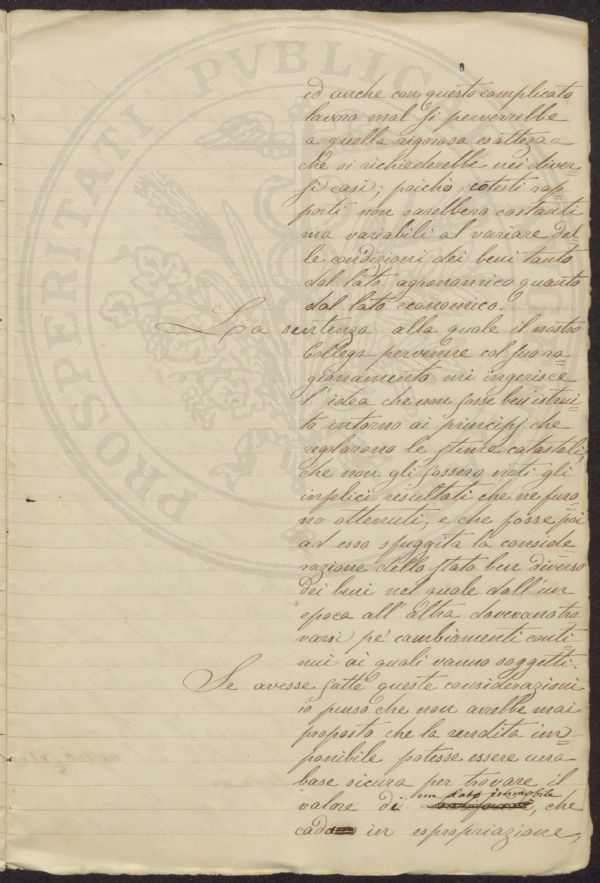 ed anche con questo complicato
lavoro mal si perverrebbe
a quella rigorosa esattezza
che si richiederebbe nei diver=
si casi; poichè cotesti rap=
porti non sarebbero costanti
ma variabili al variare del=
le condizioni dei beni tanto
dal lato agronomico quanto
dal lato economico.
La sentenza alla quale il nostro
Collega pervenne col suo ra=
gionamento mi ingerisce
l'idea che non fosse ben istrui=
to intorno ai principj che
regolarono le stime catastali,
che non gli fossero noti gli
infelici risultati che ne furo=
no ottenuti, e che fosse poi
ad esso sfuggita la conside=
razione dello stato ben diverso
dei beni nel quale dall'un
epoca all'altra dovevano tro
varsi pe' cambiamenti conti=
nui ai quali vanno soggetti.
Se avesse fatte queste considerazioni
io penso che non avrebbe mai
proposto che la rendita im=
ponibile potesse essere una
base sicura per trovare il
valore di un dato immobile, che
cada in espropriazione,
PROSPERITATI PVBLICAE